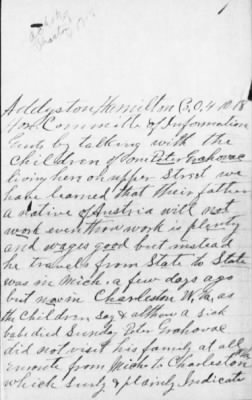 1
Addyston Hamilton Co, O
Committe of Information
Gents by talking with the
children of one Peter Grahovac
living here on upper Street we
have learned that their father
a native of Austria will not
work even thow work is plenty
and wages good but instead
he travels from State to State
was in Mich. a few days ago
but now in Charleston W, Va, as
the children say & altho a sick
babe died Sunday Peter Grahovac
did not visit his family at all
enroute from Mich to Charleston
which surly & plainly Indicate